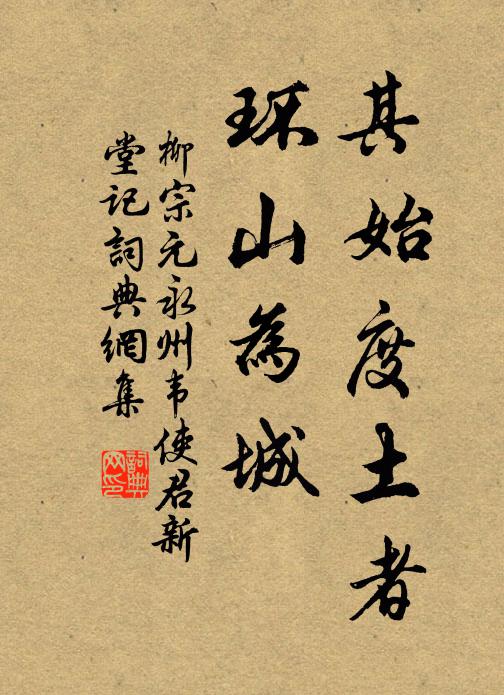 其始度土者
环山為城
柳宗元永州韦使君新
堂记詞典網集
詞典
网印